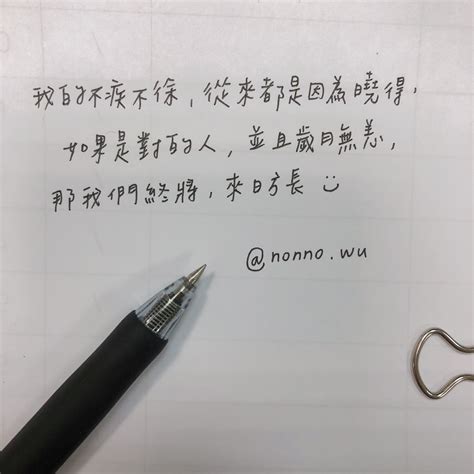 我的不疾不徐，從來都是因為曉得，
如果是對的人，並且歲月無恙，
那我們終將，來日方長 :)
@nonno.wu